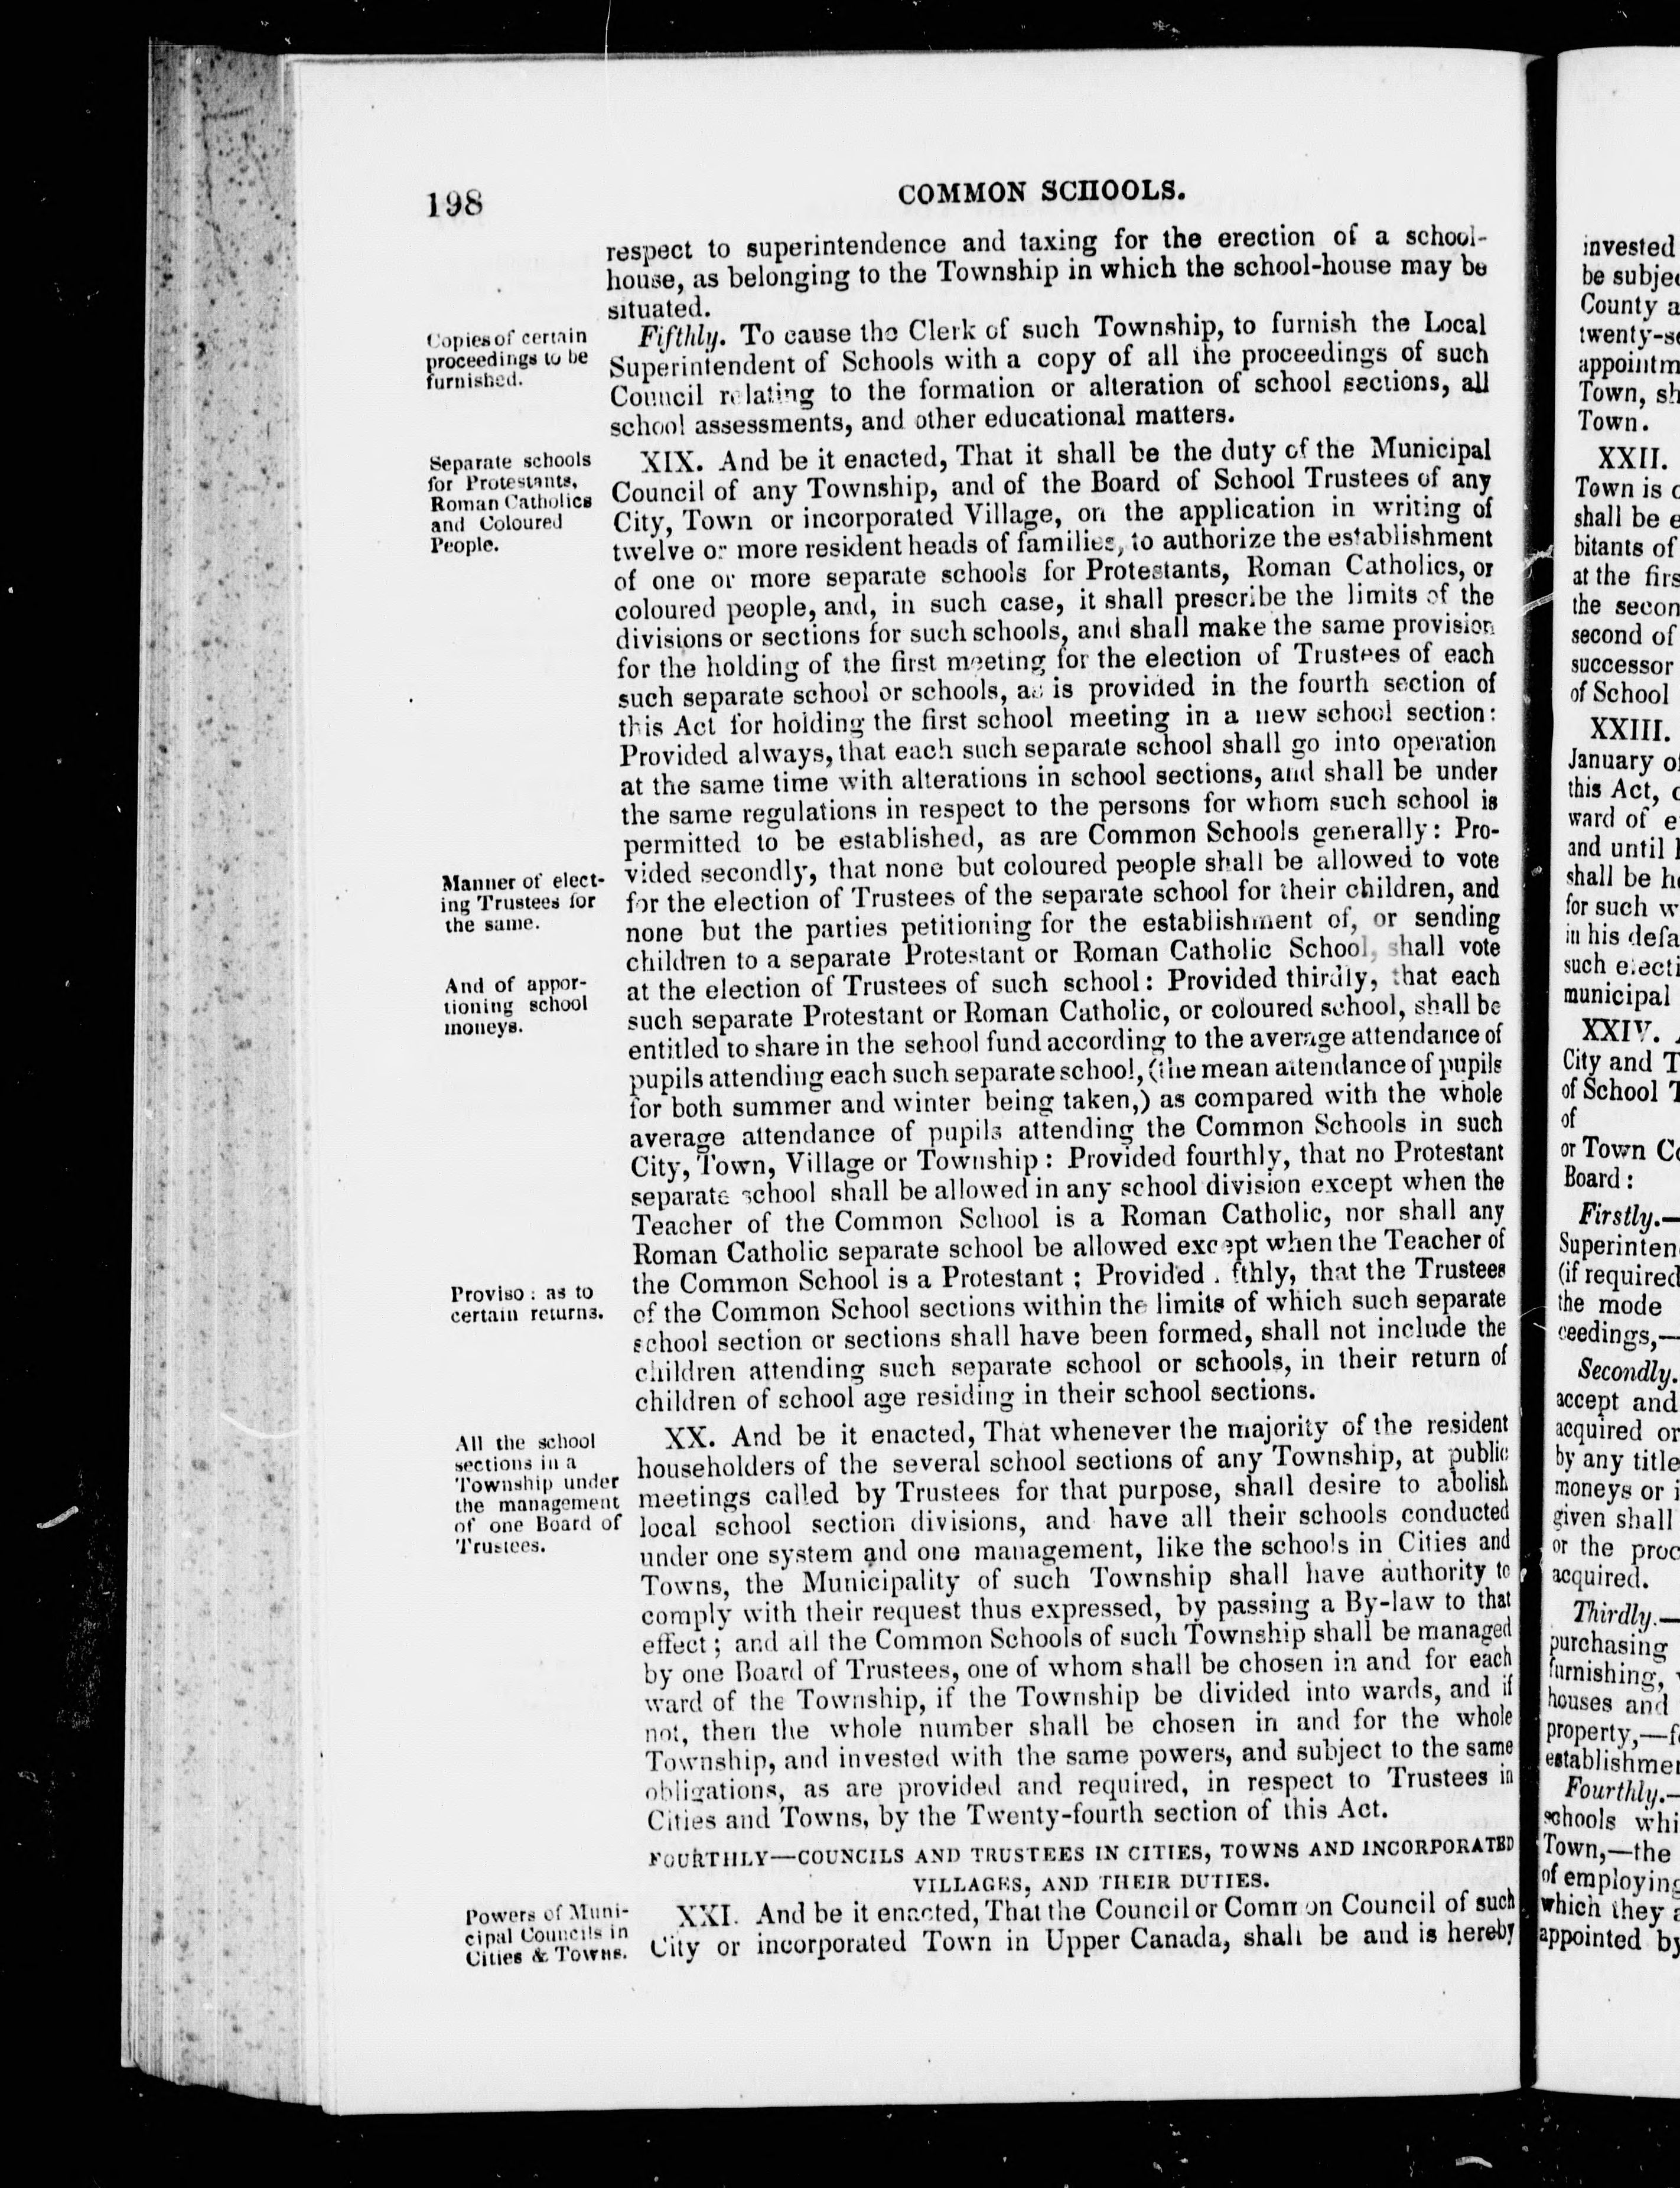 198
COMMON SCHOOLS.
respect to superintendence and taxing for the erection of a school-
house, as belonging to the Township in which the school-house may be
situated.
Copies of certain
proceedings to be
furnished.
Fifthly. To cause the Clerk of such Township, to furnish the Local
Superintendent of Schools with a copy of all the proceedings of such
Council relating to the formation or alteration of school sections, all
school assessments, and other educational matters.
Separate schools
for Protestants,
Roman Catholics
and Coloured
People.
XIX. And be it enacted, That it shall be the duty of the Municipal
Council of any Township, and of the Board of School Trustees of any
City, Town or incorporated Village, on the application in writing of
twelve or more resident heads of families, to authorize the establishment
of one or more separate schools for Protestants, Roman Catholics, or
coloured people, and, in such case, it shall prescribe the limits of the
divisions or sections for such schools, and shall make the same provision
for the holding of the first meeting for the election of Trustees of each
such separate school or schools, as is provided in the fourth section of
this Act for holding the first school meeting in a new school section:
Provided always, that each such separate school shall go into operation
at the same time with alterations in school sections, and shall be under
the same regulations in respect to the persons for whom such school is
permitted to be established, as are Common Schools generally: Pro-
Manner of elect-
ing Trustees for
the same.
vided secondly, that none but coloured people shall be allowed to vote
for the election of Trustees of the separate school for their children, and
none but the parties petitioning for the establishment of, or sending
children to a separate Protestant or Roman Catholic School, shall vote
And of appor-
tioning school
moneys.
at the election of Trustees of such school: Provided thirdly, that each
such separate Protestant or Roman Catholic, or coloured school, shall be
entitled to share in the school fund according to the average attendance of
pupils attending each such separate school, (the mean attendance of pupils
for both summer and winter being taken,) as compared with the whole
average attendance of pupils attending the Common Schools in such
City, Town, Village or Township: Provided fourthly, that no Protestant
separate school shall be allowed in any school division except when the
Teacher of the Common School is a Roman Catholic, nor shall any
Roman Catholic separate school be allowed except when the Teacher of
Proviso: as to
certain returns.
the Common School is a Protestant; Provided fthly, that the Trustees
of the Common School sections within the limits of which such separate
school section or sections shall have been formed, shall not include the
children attending such separate school or schools, in their return of
children of school age residing in their school sections.
All the school
sections in a
Township under
the management
of one Board of
Trustees.
XX. And be it enacted, That whenever the majority of the resident
householders of the several school sections of any Township, at public
meetings called by Trustees for that purpose, shall desire to abolish
local school section divisions, and have all their schools conducted
under one system and one management, like the schools in Cities and
Towns, the Municipality of such Township shall have authority to
comply with their request thus expressed, by passing a By-law to that
effect; and all the Common Schools of such Township shall be managed
by one Board of Trustees, one of whom shall be chosen in and for each
ward of the Township, if the Township be divided into wards, and if
not, then the whole number shall be chosen in and for the whole
Township, and invested with the same powers, and subject to the same
obligations, as are provided and required, in respect to Trustees in
Cities and Towns, by the Twenty-fourth section of this Act.
FOURTHLY—COUNCILS AND TRUSTEES IN CITIES, TOWNS AND INCORPORATED
VILLAGES, AND THEIR DUTIES.
Powers of Muni-
cipal Councils in
Cities & Towns.
XXI. And be it enacted, That the Council or Common Council of such
City or incorporated Town in Upper Canada, shall be and is hereby
invested
be subje
County a
twenty-s
appointm
Town, sh
Town.
XXII.
Town is
shall be e
bitants of
at the firs
the secon
second of
successor
of School
XXIII.
January of
this Act,
ward of e
and until
shall be h
for such w
in his defa
such electi
municipal
XXIV.
City and T
of School T
of
or Town Co
Board:
Firstly.—
Superinten
(if required
the mode
ceedings,—
Secondly.
accept and
acquired or
by any title
moneys or i
given shall
or the proc
acquired.
Thirdly.—
purchasing
furnishing,
houses and
property,—f
establishmen
Fourthly.—
schools whi
Town,—the
of employing
which they a
appointed by